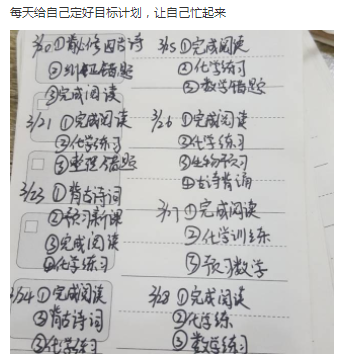 每天给自己定好目标计划，让自己忙起来
①背必修四古诗
②纠正错题
③完成阅读
3/21 ①完成阅读
②化学练习
③整理错题
3/23 ①背古诗词
②预习新课
③完成阅读
④化学练习
3/24 ①完成阅读
②背古诗词
③化学练习
①完成阅读
②化学练习
③数学错题
3/26 ①完成阅读
②化学练习
③生物预习
④古诗背诵
①完成阅读
②化学训练
③预习数学
3/28 ①完成阅读
②化学练
③数学练习